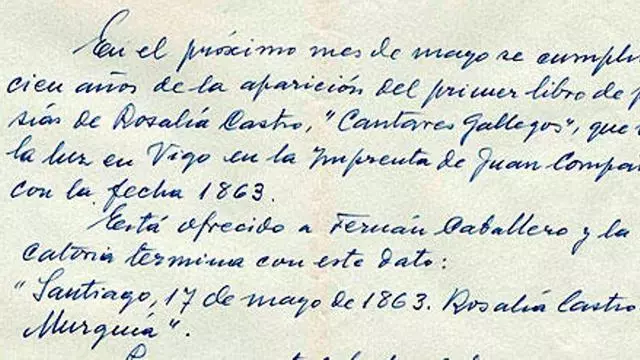 En el próximo mes de mayo se cumpli
cien años de la aparición del primer libro de p
sías de Rosalía Castro, "Cantares Gallegos", que
la luz en Vigo en la Imprenta de Juan Compa
con la fecha 1863.
Está ofrecido a Fernán Caballero y la
catoria termina con este dato:
"Santiago, 17 de mayo de 1863. Rosalía Castro
Murguía".